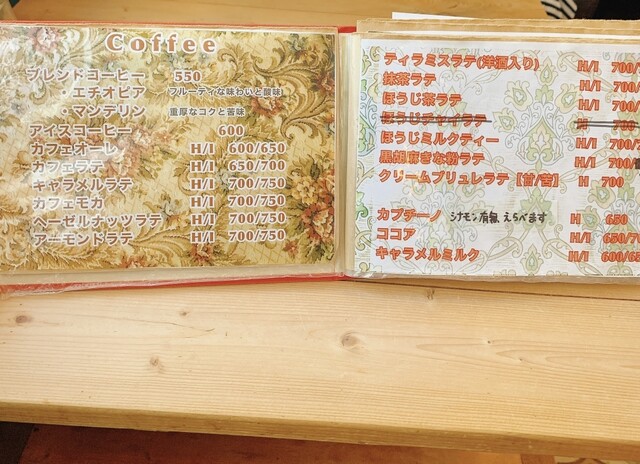 Coffee
ブレンドコーヒー 550
・エチオピア フルーティな味わいと酸味
・マンデリン 重厚なコクと苦味
アイスコーヒー 600
カフェオーレ H/I 600/650
カフェラテ H/I 650/700
キャラメルラテ H/I 700/750
カフェモカ H/I 700/750
ヘーゼルナッツラテ H/I 700/750
アーモンドラテ H/I 700/750
ティラミスラテ(洋酒入り) H/I 700/
抹茶ラテ H/I 700/
ほうじ茶ラテ H/I 700/
ほうじチャイラテ H
ほうじミルクティー H/I 700/
黒胡麻きな粉ラテ H/I 700/
クリームブリュレラテ【甘/苦】 H 700
カプチーノ シナモン有無えらべます H 650
ココア H/I 650/
キャラメルミルク H/I 600/